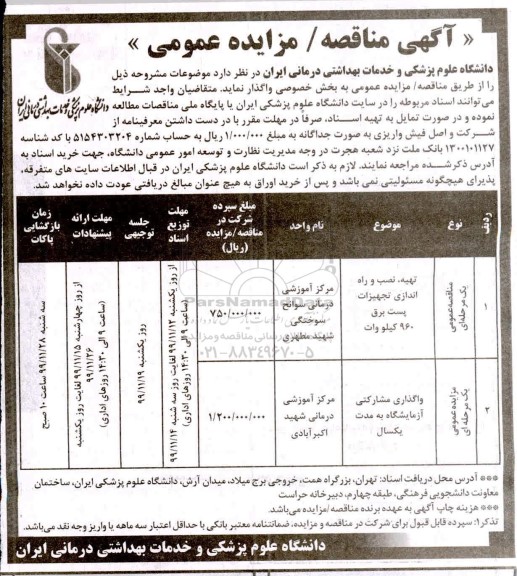 « آگهی مناقصه/ مزایده عمومی »
دانشگاه علوم پزشکی و خدمات بهداشتی درمانی ایران
دانشگاه علوم پزشکی و خدمات بهداشتی درمانی ایران در نظر دارد موضوعات مشروحه ذیل
را از طریق مناقصه/ مزایده عمومی به بخش خصوصی واگذار نماید. متقاضیان واجد شرایط
می‌توانند اسناد مربوطه را در سایت دانشگاه علوم پزشکی ایران یا پایگاه ملی مناقصات مطالعه
نموده و در صورت تمایل به تهیه اسناد، صرفاً در مهلت مقرر با در دست داشتن معرفینامه از
شرکت و اصل فیش واریزی به صورت جداگانه به مبلغ ۱/۰۰۰/۰۰۰ ریال به حساب شماره ۵۱۵۴۳۰۳۲۰۴ با کد شناسه
۱۳۰۰۱۰۱۱۲۷ بانک ملت نزد شعبه هجرت در وجه مدیریت نظارت و توسعه امور عمومی دانشگاه، جهت خرید اسناد به
آدرس ذکر شده مراجعه نمایند. لازم به ذکر است دانشگاه علوم پزشکی ایران در قبال اطلاعات سایت های متفرقه،
پذیرای هیچگونه مسئولیتی نمی باشد و پس از خرید اوراق به هیچ عنوان مبالغ دریافتی عودت داده نخواهد شد.
ردیف
نوع
موضوع
نام واحد
مبلغ سپرده شرکت در مناقصه/مزایده (ریال)
مهلت توزیع اسناد
جلسه توجیهی
مهلت ارائه پیشنهادات
زمان بازگشایی پاکات
۱
مناقصه عمومی یک مرحله‌ای
تهیه، نصب و راه اندازی تجهیزات پست برق ۹۶۰ کیلو وات
مرکز آموزشی درمانی سوانح سوختگی شهید مطهری
۷۵۰/۰۰۰/۰۰۰
از روز یکشنبه ۹۹/۱۱/۱۲ لغایت روز سه شنبه ۹۹/۱۱/۱۴ (ساعت ۹ الی ۱۴:۳۰ روزهای اداری)
روز یکشنبه ۹۹/۱۱/۱۹
از روز چهارشنبه ۹۹/۱۱/۱۵ لغایت روز یکشنبه ۹۹/۱۱/۲۶ (ساعت ۹ الی ۱۴:۳۰ روزهای اداری)
سه شنبه ۹۹/۱۱/۲۸ ساعت ۱۰ صبح
۲
مزایده عمومی یک مرحله ای
واگذاری مشارکتی آزمایشگاه به مدت یکسال
مرکز آموزشی درمانی شهید اکبرآبادی
۱/۲۰۰/۰۰۰/۰۰۰
ParsNamadData
۰۲۱-۸۸۳۴۹۶۷۰-۵
*** آدرس محل دریافت اسناد: تهران، بزرگراه همت، خروجی برج میلاد، میدان آرش، دانشگاه علوم پزشکی ایران، ساختمان
معاونت دانشجویی فرهنگی، طبقه چهارم، دبیرخانه حراست
*** هزینه چاپ آگهی به عهده برنده مناقصه/مزایده می‌باشد.
تذکر۱: سپرده قابل قبول برای شرکت در مناقصه و مزایده، ضمانتنامه معتبر بانکی با حداقل اعتبار سه ماهه یا واریز وجه نقد می‌باشد.
دانشگاه علوم پزشکی و خدمات بهداشتی درمانی ایران